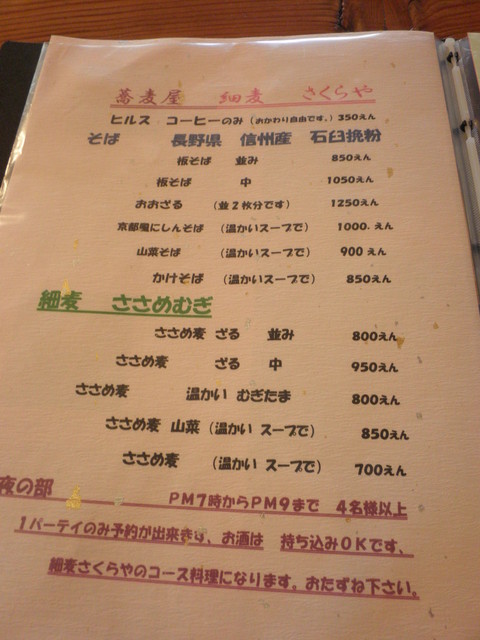 蕎麦屋 細麦 さくらや
ヒルス コーヒーのみ（おかわり自由です。）350えん
そば 長野県 信州産 石臼挽粉
板そば 並み 850えん
板そば 中 1050えん
おおざる （並２枚分です） 1250えん
京都風にしんそば （温かいスープで） 1000.えん
山菜そば （温かいスープで） 900えん
かけそば （温かいスープで） 850えん
細麦 ささめむぎ
ささめ麦 ざる 並み 800えん
ささめ麦 ざる 中 950えん
ささめ麦 温かい むぎたま 800えん
ささめ麦 山菜（温かい スープで） 850えん
ささめ麦 （温かい スープで） 700えん
夜の部 ＰＭ７時からＰＭ９まで ４名様以上
１パーティのみ予約が出来ます、お酒は 持ち込みＯＫです、
細麦さくらやのコース料理になります。おたずね下さい。